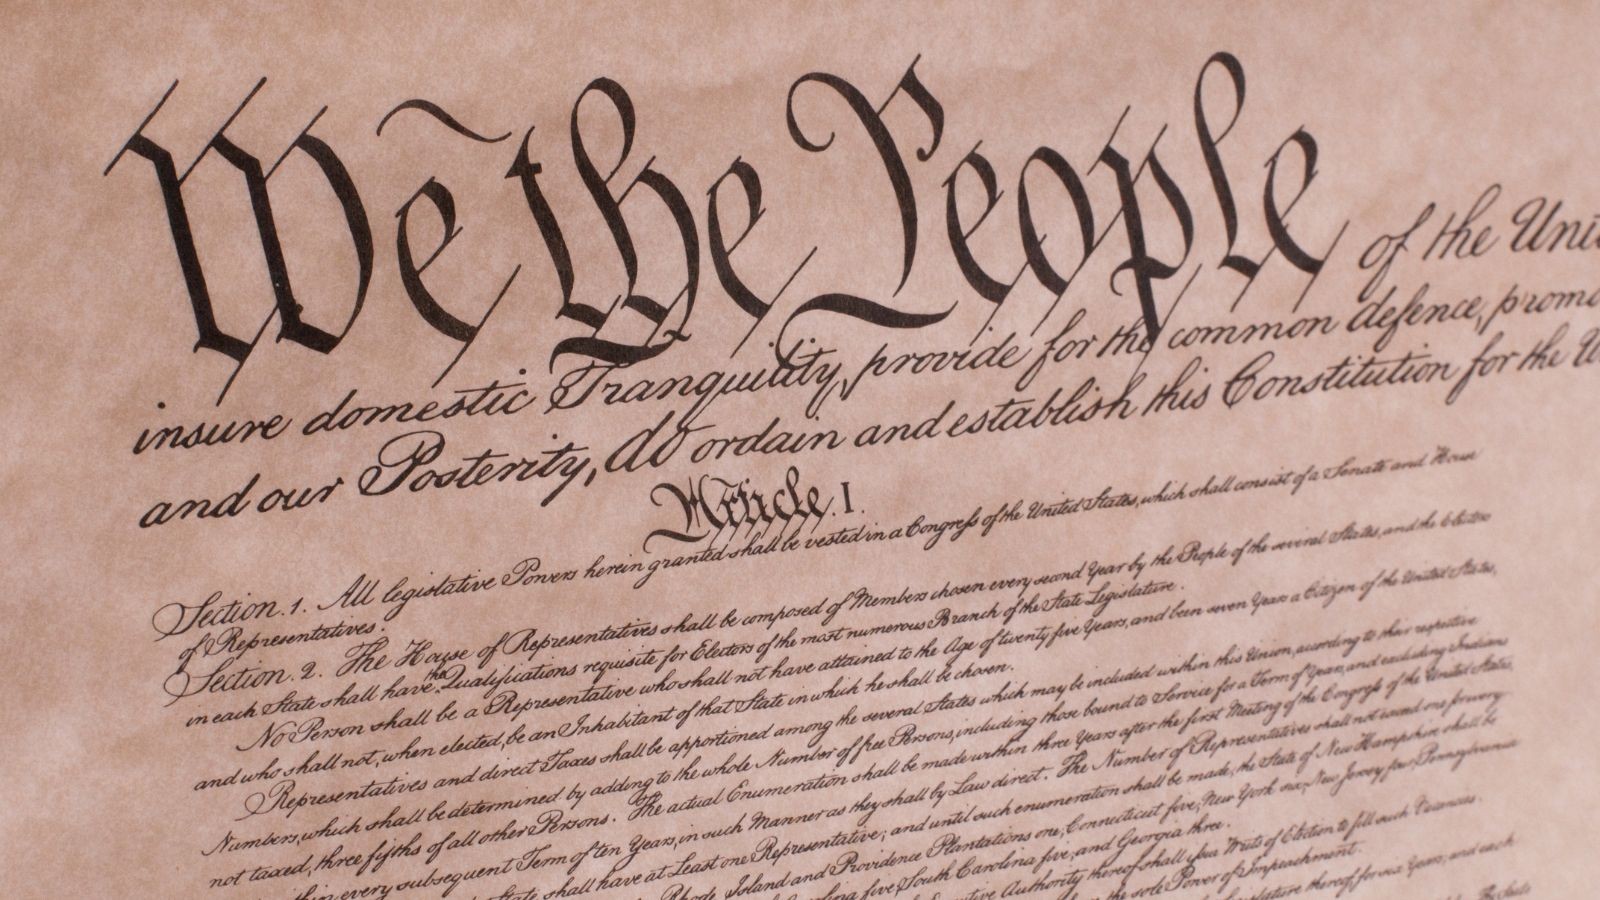 We the People of the Uni
insure domestic Tranquility, provide for the common defence, promo
and our Posterity, do ordain and establish this Constitution for the U
Article. I.
Section. 1. All legislative Powers herein granted shall be vested in a Congress of the United States, which shall consist of a Senate and House
of Representatives.
Section. 2. The House of Representatives shall be composed of Members chosen every second Year by the People of the several States, and the Electors
in each State shall have the Qualifications requisite for Electors of the most numerous Branch of the State Legislature.
No Person shall be a Representative who shall not have attained to the Age of twenty five Years, and been seven Years a Citizen of the United States,
and who shall not, when elected, be an Inhabitant of that State in which he shall be chosen.
Representatives and direct Taxes shall be apportioned among the several States which may be included within this Union, according to their respective
Numbers, which shall be determined by adding to the whole Number of free Persons, including those bound to Service for a Term of Years, and excluding Indians
not taxed, three fifths of all other Persons. The actual Enumeration shall be made within three Years after the first Meeting of the Congress of the United States,
every subsequent Term of ten Years, in such Manner as they shall by Law direct. The Number of Representatives shall not exceed one for every
State shall have at Least one Representative; and until such enumeration shall be made, the State of New Hampshire shall be
Rhode Island and Providence Plantations one, Connecticut five, New York six, New Jersey four, Pennsylvania
five, South Carolina five, and Georgia three.
Executive Authority thereof shall issue Writs of Election to fill such Vacancies.
the sole Power of Impeachment.
thereof, for six Years; and each